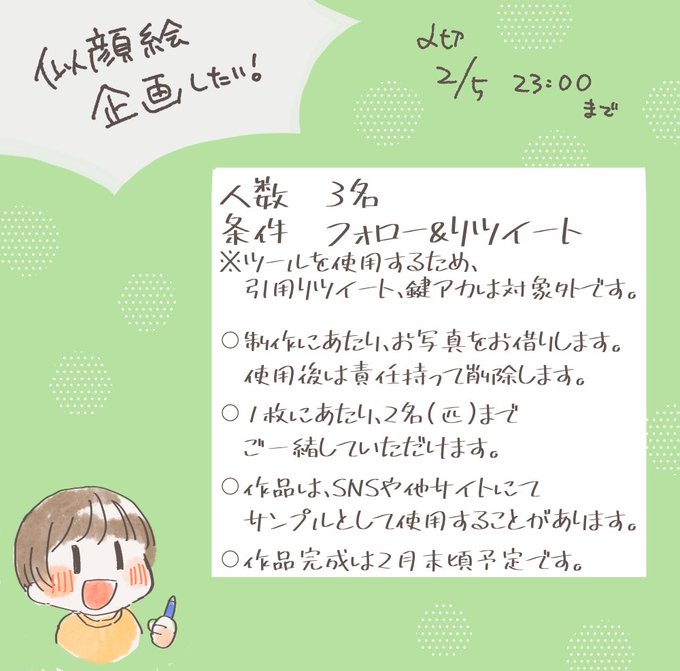 似顔絵
企画したい!
〆切
2/5 23:00
まで
人数 3名
条件 フォロー&リツイート
※ツールを使用するため、
引用リツイート、鍵アカは対象外です。
○制作にあたり、お写真をお借りします。
使用後は責任持って削除します。
○1枚にあたり、2名(匹)まで
ご一緒していただけます。
○作品は、SNSや他サイトにて
サンプルとして使用することがあります。
○作品完成は2月末頃予定です。